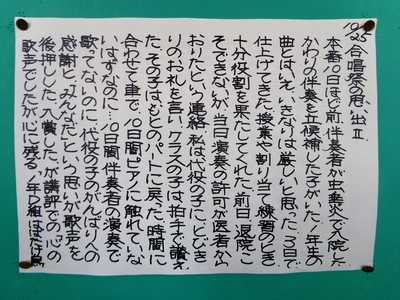 10/25
合唱祭の思い出Ⅱ
本番10日ほど前、伴奏者が虫垂炎で入院した。
かわりの伴奏を立候補した子がいた！年生の
曲とはいえ、いきなりは厳しいと思った。3日で
仕上げてきた。授業や割り当て練習のとき
十分役割を果たしてくれた。前日、退院こ
そできないが、当日演奏の許可が医者から
おりたという連絡。私は代役の子に、とびき
りのお礼を言い、クラスの子は拍手で讃え
た。その子はもとのパートに戻った。時間に
合わせて車で。10日間ピアノに触れていな
いはずなのに…。10日間伴奏者の演奏で
歌てないのに。代役の子のがんばりへの
感謝と、みんなだという思いが歌声を
後押しした。入賞した。が、講評での「心の
歌声でした」が心に残る。1年D組はばたけ鳥